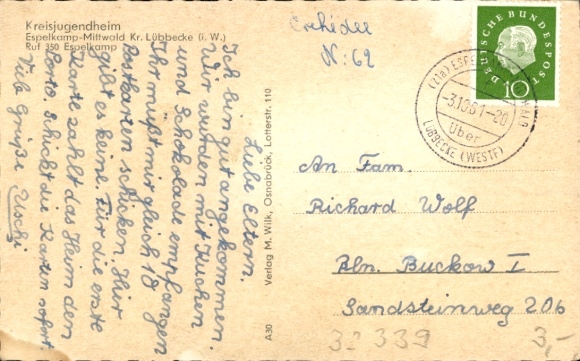 Kreisjugendheim
Espelkamp-Mittwald Kr. Lübbecke (i. W.)
Ruf 350 Espelkamp
Liebe Eltern.
Ich bin gut angekommen.
Wir wurden mit Kuchen
und Schokolade empfangen
Ihr müßt mir gleich 18
Postkarten schicken. Hier
gibt es keine. Für die erste
Karte zahlt das Heim den
Porto. Schickt die Karten sofort.
Viele Grüße Uschi
Verlag M. Wilk, Osnabrück, Lotterstr. 110
A30
Orchidee
N: 69
DEUTSCHE BUNDESPOST
10
(21a) ESPELKAMP
-3.10.61-20
Über
LÜBBECKE (WESTF)
An Fam.
Richard Wolf
Bln. Buckow I
Sandsteinweg 206
32 339
3,-